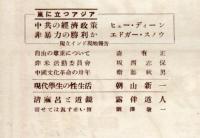 嵐に立つアジア
中共の経済政策 ヒュー・ディーン
非暴力の勝利か エドガー・スノウ
独立インド現地報告
自由の尊重について 森有正
非米活動委員会 坂西志保
中國文化革命の卅年 齋藤秋男
現代學生の性生活 朝山新一
清麗呂と道鏡 露伴道人